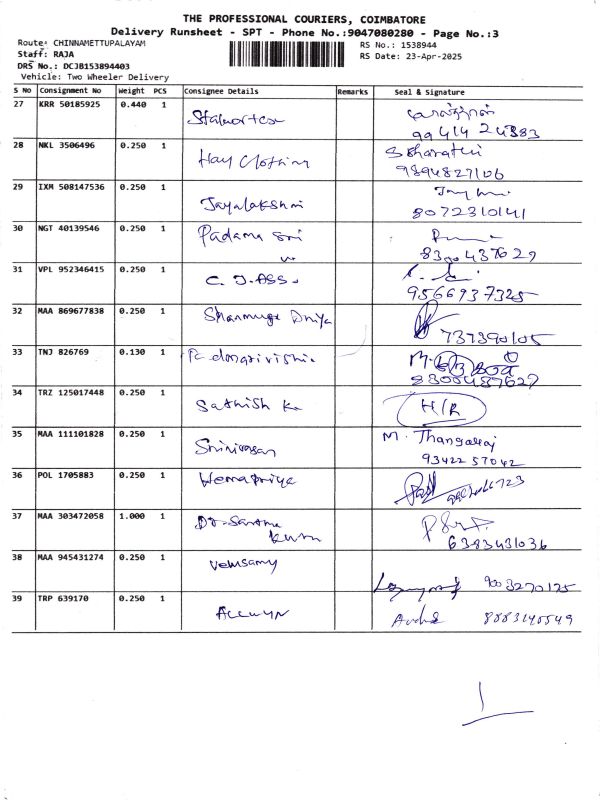 THE PROFESSIONAL COURIERS, COIMBATORE
Delivery Runsheet - SPT - Phone No.:9047080280 - Page No.:3
Route: CHINNAMETTUPALAYAM
RS No.: 1538944
Staff: RAJA
RS Date: 23-Apr-2025
DRS No.: DCJB153894403
Vehicle: Two Wheeler Delivery
S No Consignment No Weight PCS Consignee Details Remarks Seal & Signature
27 KRR 50185925 0.440 1
99414 24383
28 NKL 3506496 0.250 1 Hay Clothing S Bharathi
9894827106
29 IXM 508147536 0.250 1 Jayalakshmi
8072310141
30 NGT 40139546 0.250 1 Padama Sri
8300437629
31 VPL 952346415 0.250 1 C. J. ASS.
9566937325
32 MAA 869677838 0.250 1 Shanmuga Driya
737390105
33 TNJ 826769 0.130 1
8300487627
34 TRZ 125017448 0.250 1 Sathish K H/R
35 MAA 111101828 0.250 1 Srinivasan M. Thangaraj
93422 57042
36 POL 1705883 0.250 1 Hemapriya
37 MAA 303472058 1.000 1 Dr. Santha
6383431036
38 MAA 945431274 0.250 1 Velusamy
9003270125
39 TRP 639170 0.250 1 ALLWYN
8883140549